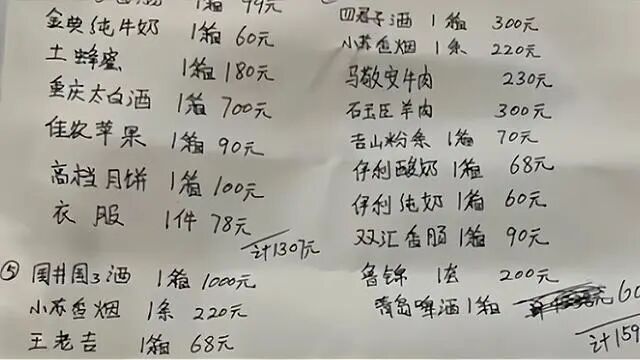 1箱 99元
金典纯牛奶 1箱 60元
土蜂蜜 1箱 180元
重庆太白酒 1箱 700元
佳农苹果 1箱 90元
高档月饼 1箱 100元
衣服 1件 78元
计1307元
⑤ 国井国3酒 1箱 1000元
小苏香烟 1条 220元
王老吉 1箱 68元
四君子酒 1箱 300元
小苏香烟 1条 220元
马敬安牛肉 230元
石玉臣羊肉 300元
吉山粉条 1箱 70元
伊利酸奶 1箱 68元
伊利纯奶 1箱 60元
双汇香肠 1箱 90元
鲁锦 1套 200元
青岛啤酒 1箱 60
计159